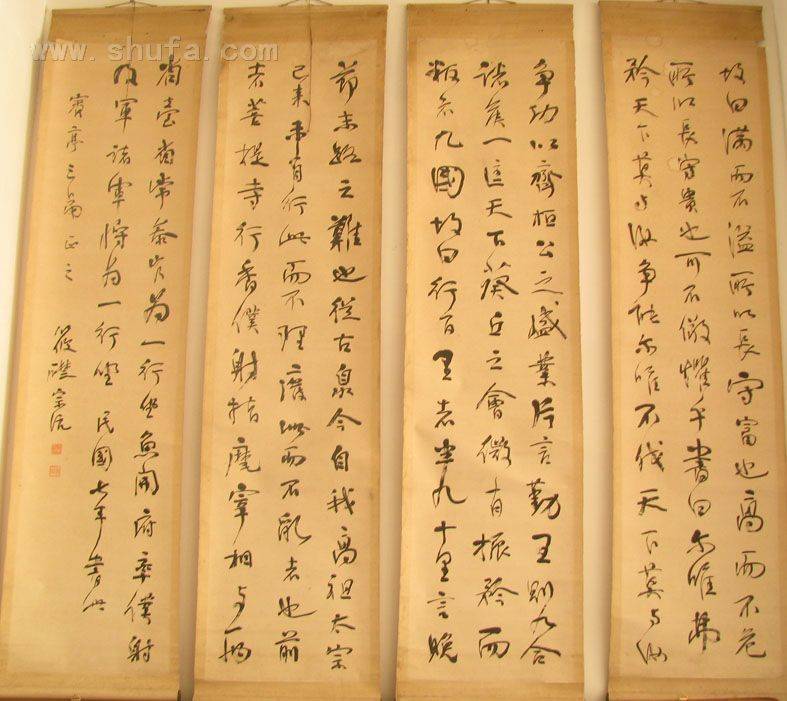 www.shufa.com
故曰滿而不溢所以長守富也高而不危
所以長守貴也可不儆懼乎書曰尔唯弗
矜天下莫与汝争能尔唯不伐天下莫与汝
争功以齊桓公之盛業片言勤王則九合
諸侯一匡天下葵丘之會微有振矜而
叛者九國故曰行百里者半九十里言晚
節末路之難也從古臮今自我高祖太宗
已来未有行此而不理廢此而不亂者也前
者菩提寺行香僕射指麾宰相与兩
省臺省常參官為一行坐魚開府率僕射
及軍諸軍將為一行坐 民國七年書此
賓亭三弟正之 宗沅